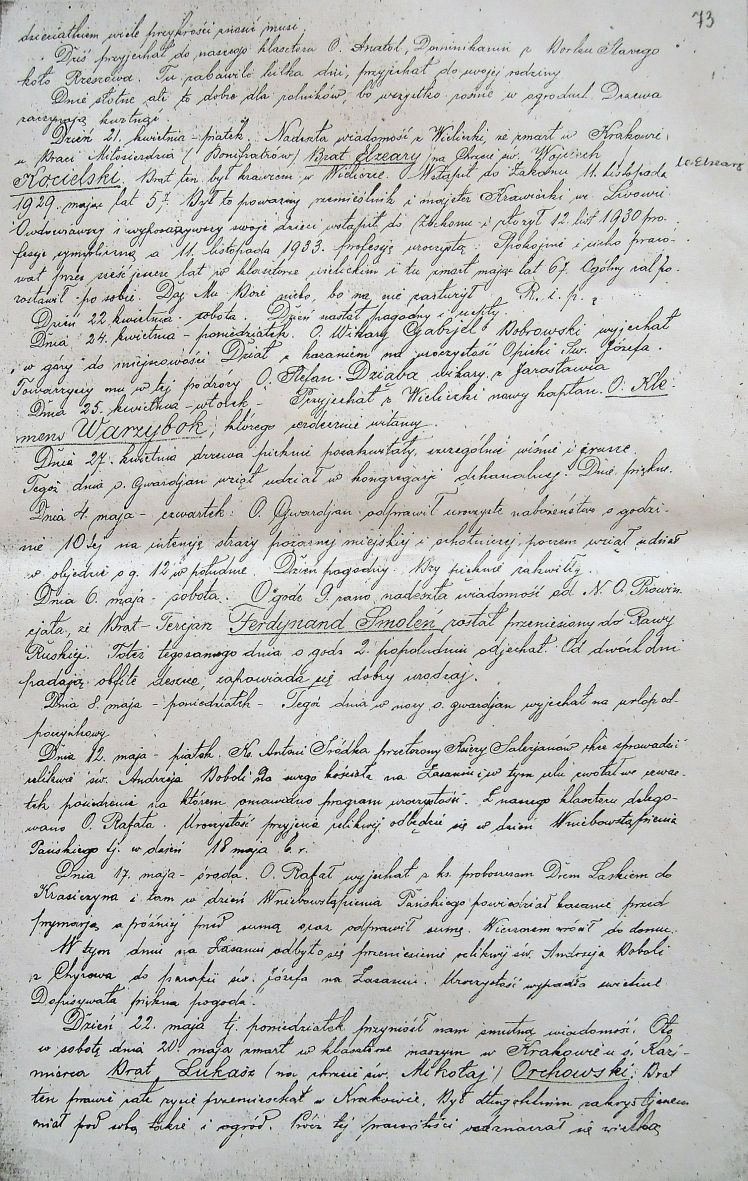 73
dzieciątkiem wiele przykrości znosić musi.
Dziś przyjechał do naszego klasztoru O. Anatol, Dominikanin z Borku Starego
koło Rzeszowa. Tu zabawił kilka dni, przyjechał do swojej rodziny.
Dnie słotne ale to dobre dla rolników, bo wszystko rośnie w ogrodach. Drzewa
zaczynają kwitnąć.
Dzień 21. kwietnia - piątek. Nadeszła wiadomość z Wieliczki, że zmarł w Krakowie
u Braci Miłosierdzia (Bonifratrów) Brat Elzeary (na Chrzcie św. Wojciech
śp. Elzeary
Kocielski. Brat ten był krawcem w Wieliczce. Wstąpił do Zakonu 11. listopada
1929. mając lat 57. Był to poważny rzemieślnik i majster krawiecki we Lwowie.
Owdowiawszy i wykształciwszy swoje dzieci wstąpił do Zakonu i złożył 12. list 1930 pro-
fesję symplicną a 11. listopada 1933. profesję uroczystą. Spokojnie i cicho praco-
wał przez sześć lat w klasztorze wielickim i tu zmarł mając lat 67. Ogólny żal po-
zostawił po sobie. Daj Mu Boże niebo, bo na nie zasłużył. R. i. p.
Dzień 22 kwietnia - sobota. Dzień nastał pogodny i ciepły.
Dnia 24. kwietnia - poniedziałek. O. Wikary Gabrjel Bobrowski wyjechał
"w góry" do miejscowości Dział z kazaniem na uroczystość Opieki Św. Józefa.
Towarzyszy mu w tej podróży O. Stefan Dziaba wikary z Jarosławia
Dnia 25. kwietnia - wtorek - Przyjechał z Wieliczki nowy kapłan O. Kle-
mens Warzybok, którego serdecznie witamy.
Dnia 27. kwietnia drzewa pięknie pozakwitały, szczególnie wiśnie i grusze.
Tegoż dnia o. gwardjan wziął udział w kongregacji dekanalnej. Dnie piękne.
Dnia 4. maja - czwartek: O. Gwardjan odprawił uroczyste nabożeństwo o godzi-
nie 10tej na intencję straży pożarnej miejskiej i ochotniczej, poczem wziął udział
w obiedzie o g. 12 w południe. Dzień pogodny. Bzy pięknie zakwitły.
Dnia 6. maja - sobota. O godz 9. rano nadeszła wiadomość od N. O. Prowin-
cjała, że Brat-Tercjarz Ferdynand Smoleń został przeniesiony do Rawy
Ruskiej. Toteż tegosamego dnia o godz 2. popołudniu odjechał. Od dwóch dni
padają obfite deszcze, zapowiada się dobry urodzaj.
Dnia 8. maja - poniedziałek - Tegoż dnia w nocy o. gwardjan wyjechał na urlop od-
poczynkowy.
Dnia 12. maja - piątek. Ks. Antoni Śródka przełożony Księży Salezjanów chce sprowadzić
relikwie św. Andrzeja Boboli do swego kościoła na Zasaniu i w tym celu zwołał we czwar-
tek posiedzenie na którem omawiano program uroczystości. Z naszego klasztoru delego-
wano O. Rafała. Uroczystość przyjęcia relikwij odbędzie się w dzień Wniebowstąpienia
Pańskiego tj. w dzień 18 maja b. r.
Dnia 17. maja - środa. O. Rafał wyjechał z ks. proboszczem Drem Laskiem do
Krasiczyna i tam w dzień Wniebowstąpienia Pańskiego powiedział kazanie przed
prymarją a później przed sumą oraz odprawił sumę. Wieczorem wrócił do domu.
W tym dniu na Zasaniu odbyło się przeniesienie relikwij św. Andrzeja Boboli
z Chyrowa do parafii św. Józefa na Zasaniu. Uroczystość wypadła świetnie.
Dopisywała piękna pogoda.
Dzień 22. maja tj. poniedziałek przyniósł nam smutną wiadomość. Oto
w sobotę dnia 20. maja zmarł w klasztorze naszym w Krakowie u ś. Kazi-
mierza Brat Łukasz (na chrzcie św. Mikołaj) Orchowski. Brat
ten prawie całe życie przemieszkał w Krakowie, Był długoletnim zakrystjanem
miał pod sobą także i ogród. Prócz tej pracowitości odznaczał się wielką